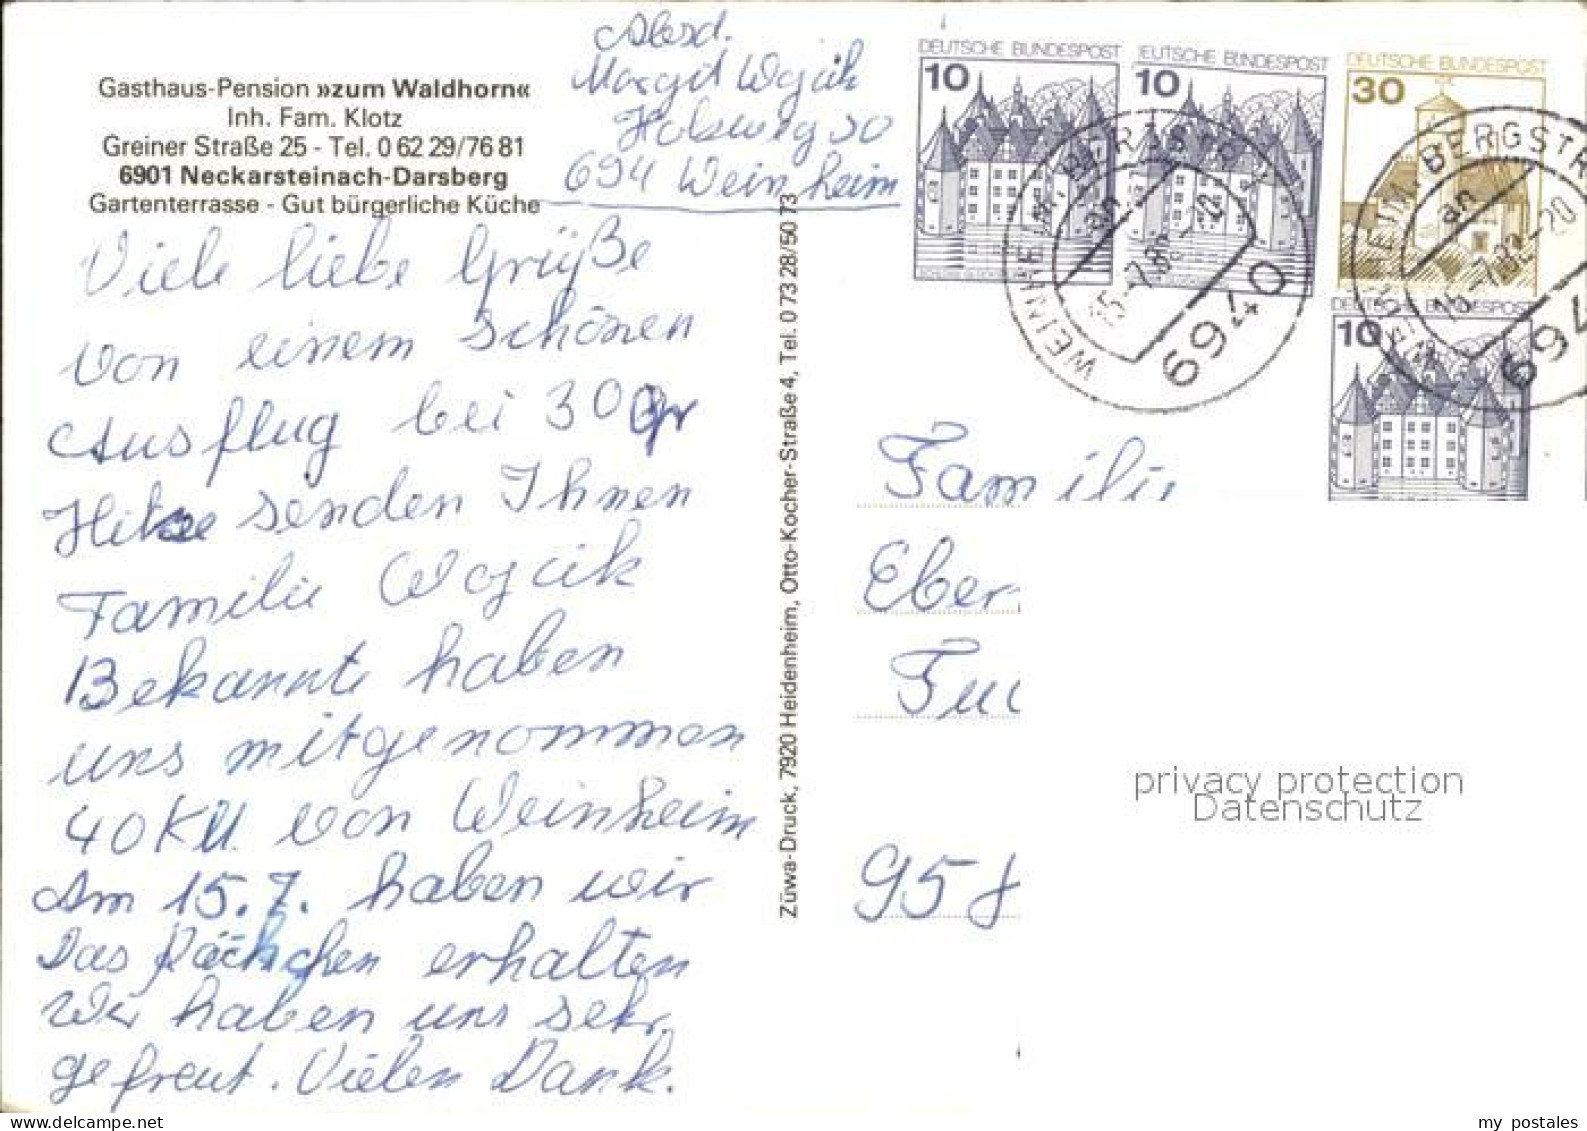 Absd.
Margit Wojcik
Holzweg 30
694 Weinheim
Gasthaus-Pension »zum Waldhorn«
Inh. Fam. Klotz
Greiner Straße 25 - Tel. 0 62 29/76 81
6901 Neckarsteinach-Darsberg
Gartenterrasse - Gut bürgerliche Küche
Viele liebe Grüße
von einem schönen
Ausflug bei 30 gr
Hitze senden Ihnen
Familie Wojcik
Bekannte haben
uns mitgenommen
40 KM. von Weinheim
Am 15.7. haben wir
Das Päckchen erhalten
Wir haben uns sehr
gefreut. Vielen Dank.
Züwa-Druck, 7920 Heidenheim, Otto-Kocher-Straße 4, Tel. 0 73 28/50 73
DEUTSCHE BUNDESPOST
10
EUTSCHE BUNDESPOST
10
DEUTSCHE BUNDESPOST
30
DEUTSCHE BUNDESPOST
10
WEINHEIM, BERGSTR
an
6940
WEINHEIM, BERGSTR
an
16.-7.82-20
694
Famili
Eber
Fu
958
privacy protection
Datenschutz
www.delcampe.net
my_postales